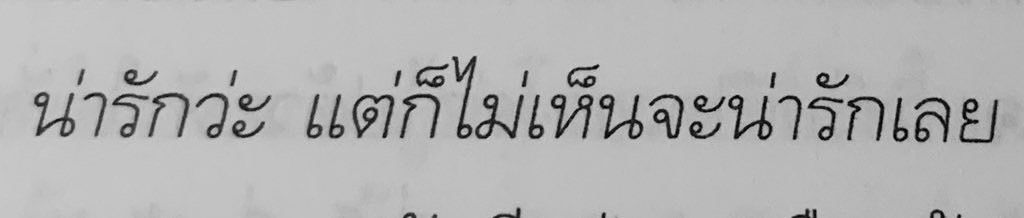 น่ารักว่ะ แต่ก็ไม่เห็นจะน่ารักเลย